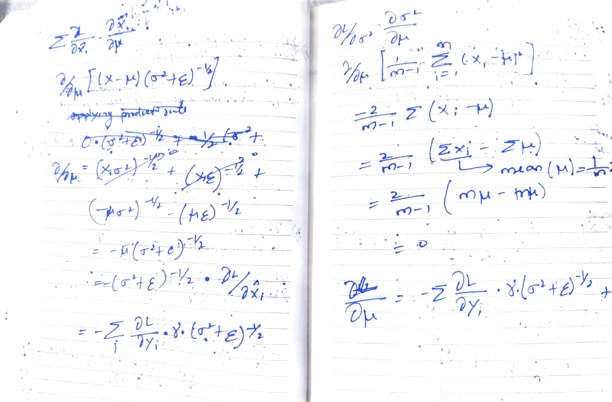 Σ ∂/∂x̂ᵢ · ∂x̂ᵢ/∂μ
∂/∂μ [(x-μ)(σ²+ε)^-1/2]
applying product rule
0·(σ²+ε)^-1/2 + -1/2(σ²+
∂/∂μ = (xᵢσ²)^-1/2 + (xε)^-1/2 +
(-μσ²)^-1/2 - (με)^-1/2
= -μ(σ²+ε)^-1/2
= -(σ²+ε)^-1/2 · ∂L/∂x̂ᵢ
= -Σᵢ ∂L/∂yᵢ · γ · (σ²+ε)^-1/2
∂L/∂σ² · ∂σ²/∂μ
∂/∂μ [1/m-1 Σ^m_i=1 (xᵢ-μ)²]
= 2/m-1 Σ (xᵢ-μ)
= 2/m-1 (Σxᵢ - Σμ)
→ mean (μ) = 1/m
= 2/m-1 (mμ - mμ)
= 0
∂L/∂μ = -Σ ∂L/∂yᵢ · γ·(σ²+ε)^-1/2 +